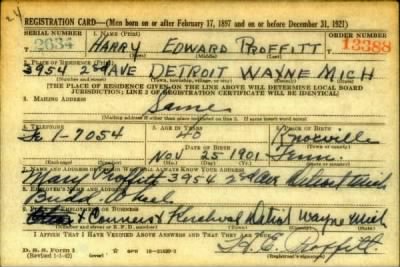 24
REGISTRATION CARD—(Men born on or after February 17, 1897 and on or before December 31, 1921)
SERIAL NUMBER 1. NAME (Print) ORDER NUMBER
2634 HARRY EDWARD PROFFITT 13388
(First) (Middle) (Last)
2. PLACE OF RESIDENCE (Print)
3954 25 AVE DETROIT WAYNE MICH
(Number and street) (Town, township, village, or city) (County) (State)
[THE PLACE OF RESIDENCE GIVEN ON THE LINE ABOVE WILL DETERMINE LOCAL BOARD
JURISDICTION; LINE 2 OF REGISTRATION CERTIFICATE WILL BE IDENTICAL]
3. MAILING ADDRESS
Same
(Mailing address if other than place indicated on line 2. If same insert word same)
4. TELEPHONE 5. AGE IN YEARS 6. PLACE OF BIRTH
1-7054 40 Knoxville
DATE OF BIRTH (Town or county)
NOV 25 1901 Tenn.
(Mo.) (Day) (Yr.) (State or country)
7. NAME AND ADDRESS OF PERSON WHO WILL ALWAYS KNOW YOUR ADDRESS
Proffitt 3954 25 Ave Detroit Mich
8. EMPLOYER'S NAME AND ADDRESS
Budd Wheel
9. PLACE OF EMPLOYMENT OR BUSINESS
& Conners & Kercheval Detroit Wayne Mich
(Number and street or R. F. D. number) (Town) (County) (State)
I AFFIRM THAT I HAVE VERIFIED ABOVE ANSWERS AND THAT THEY ARE TRUE.
D. S. S. Form 1
(Revised 1-1-42) (over) 16-21630-2
H. E. Proffitt